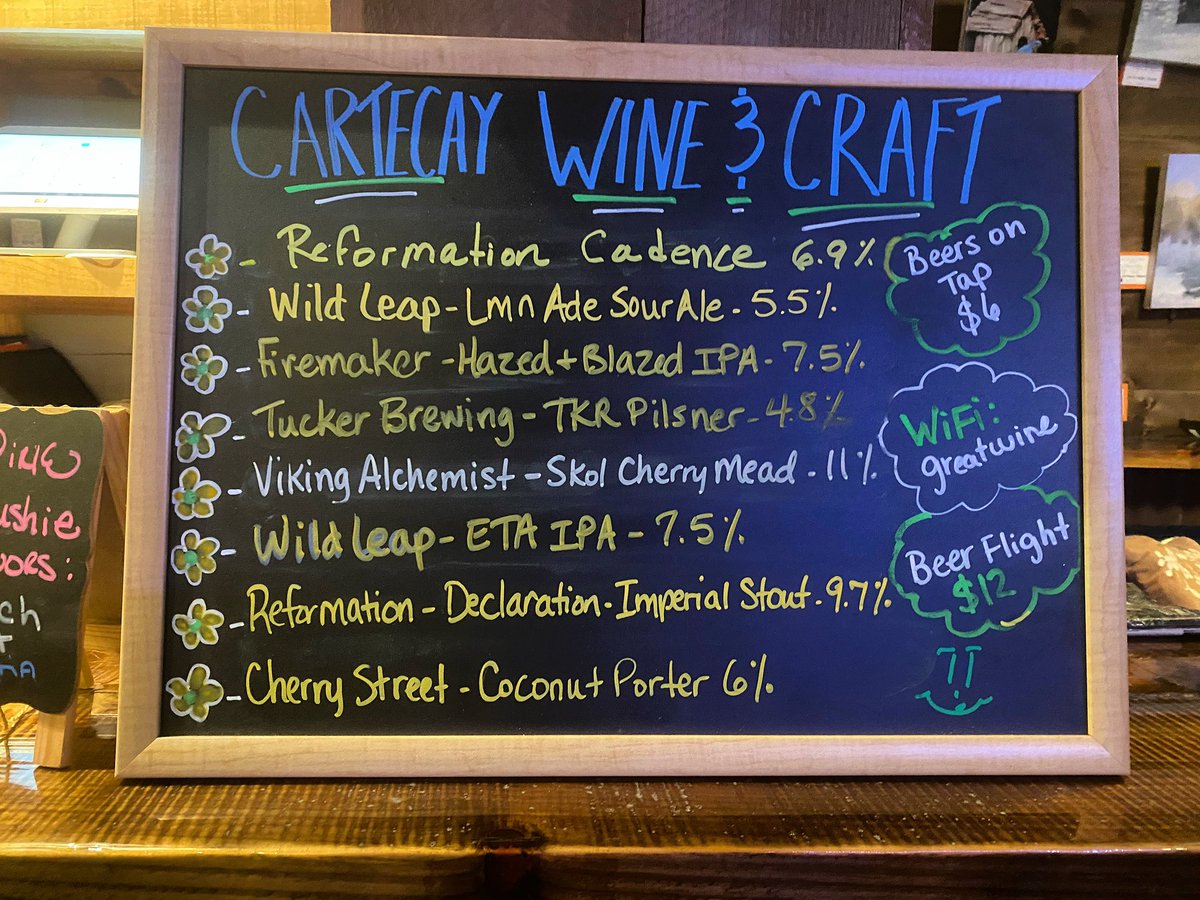 CARTECAY WINE & CRAFT
- Reformation Cadence 6.9%
- Wild Leap - Lmn Ade Sour Ale - 5.5%
- Firemaker - Hazed + Blazed IPA - 7.5%
- Tucker Brewing - TKR Pilsner - 4.8%
- Viking Alchemist - Skol Cherry Mead - 11%
- Wild Leap - ETA IPA - 7.5%
- Reformation - Declaration - Imperial Stout - 9.7%
- Cherry Street - Coconut Porter 6%
Beers on
Tap
$6
WiFi:
greatwine
Beer Flight
$12